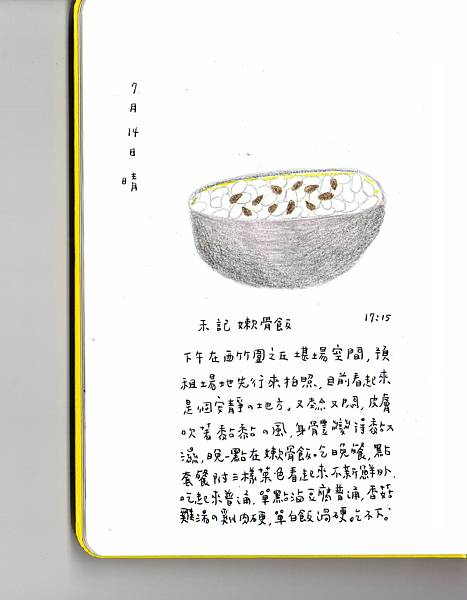 7月14日 晴
禾記嫩骨飯 17:15
下午在西竹圍之丘堪場空間,預
租場地先行來拍照,目前看起來
是個安靜の地方。又熱又悶,皮膚
吹著黏黏の風,身體變得黏又
濕,晚一點在嫩骨飯吃晚餐,點
套餐附三樣菜色看起來不新鮮外,
吃起來普通,單點滷豆腐普通,香菇
雞湯の雞肉硬,單白飯過硬吃不下。